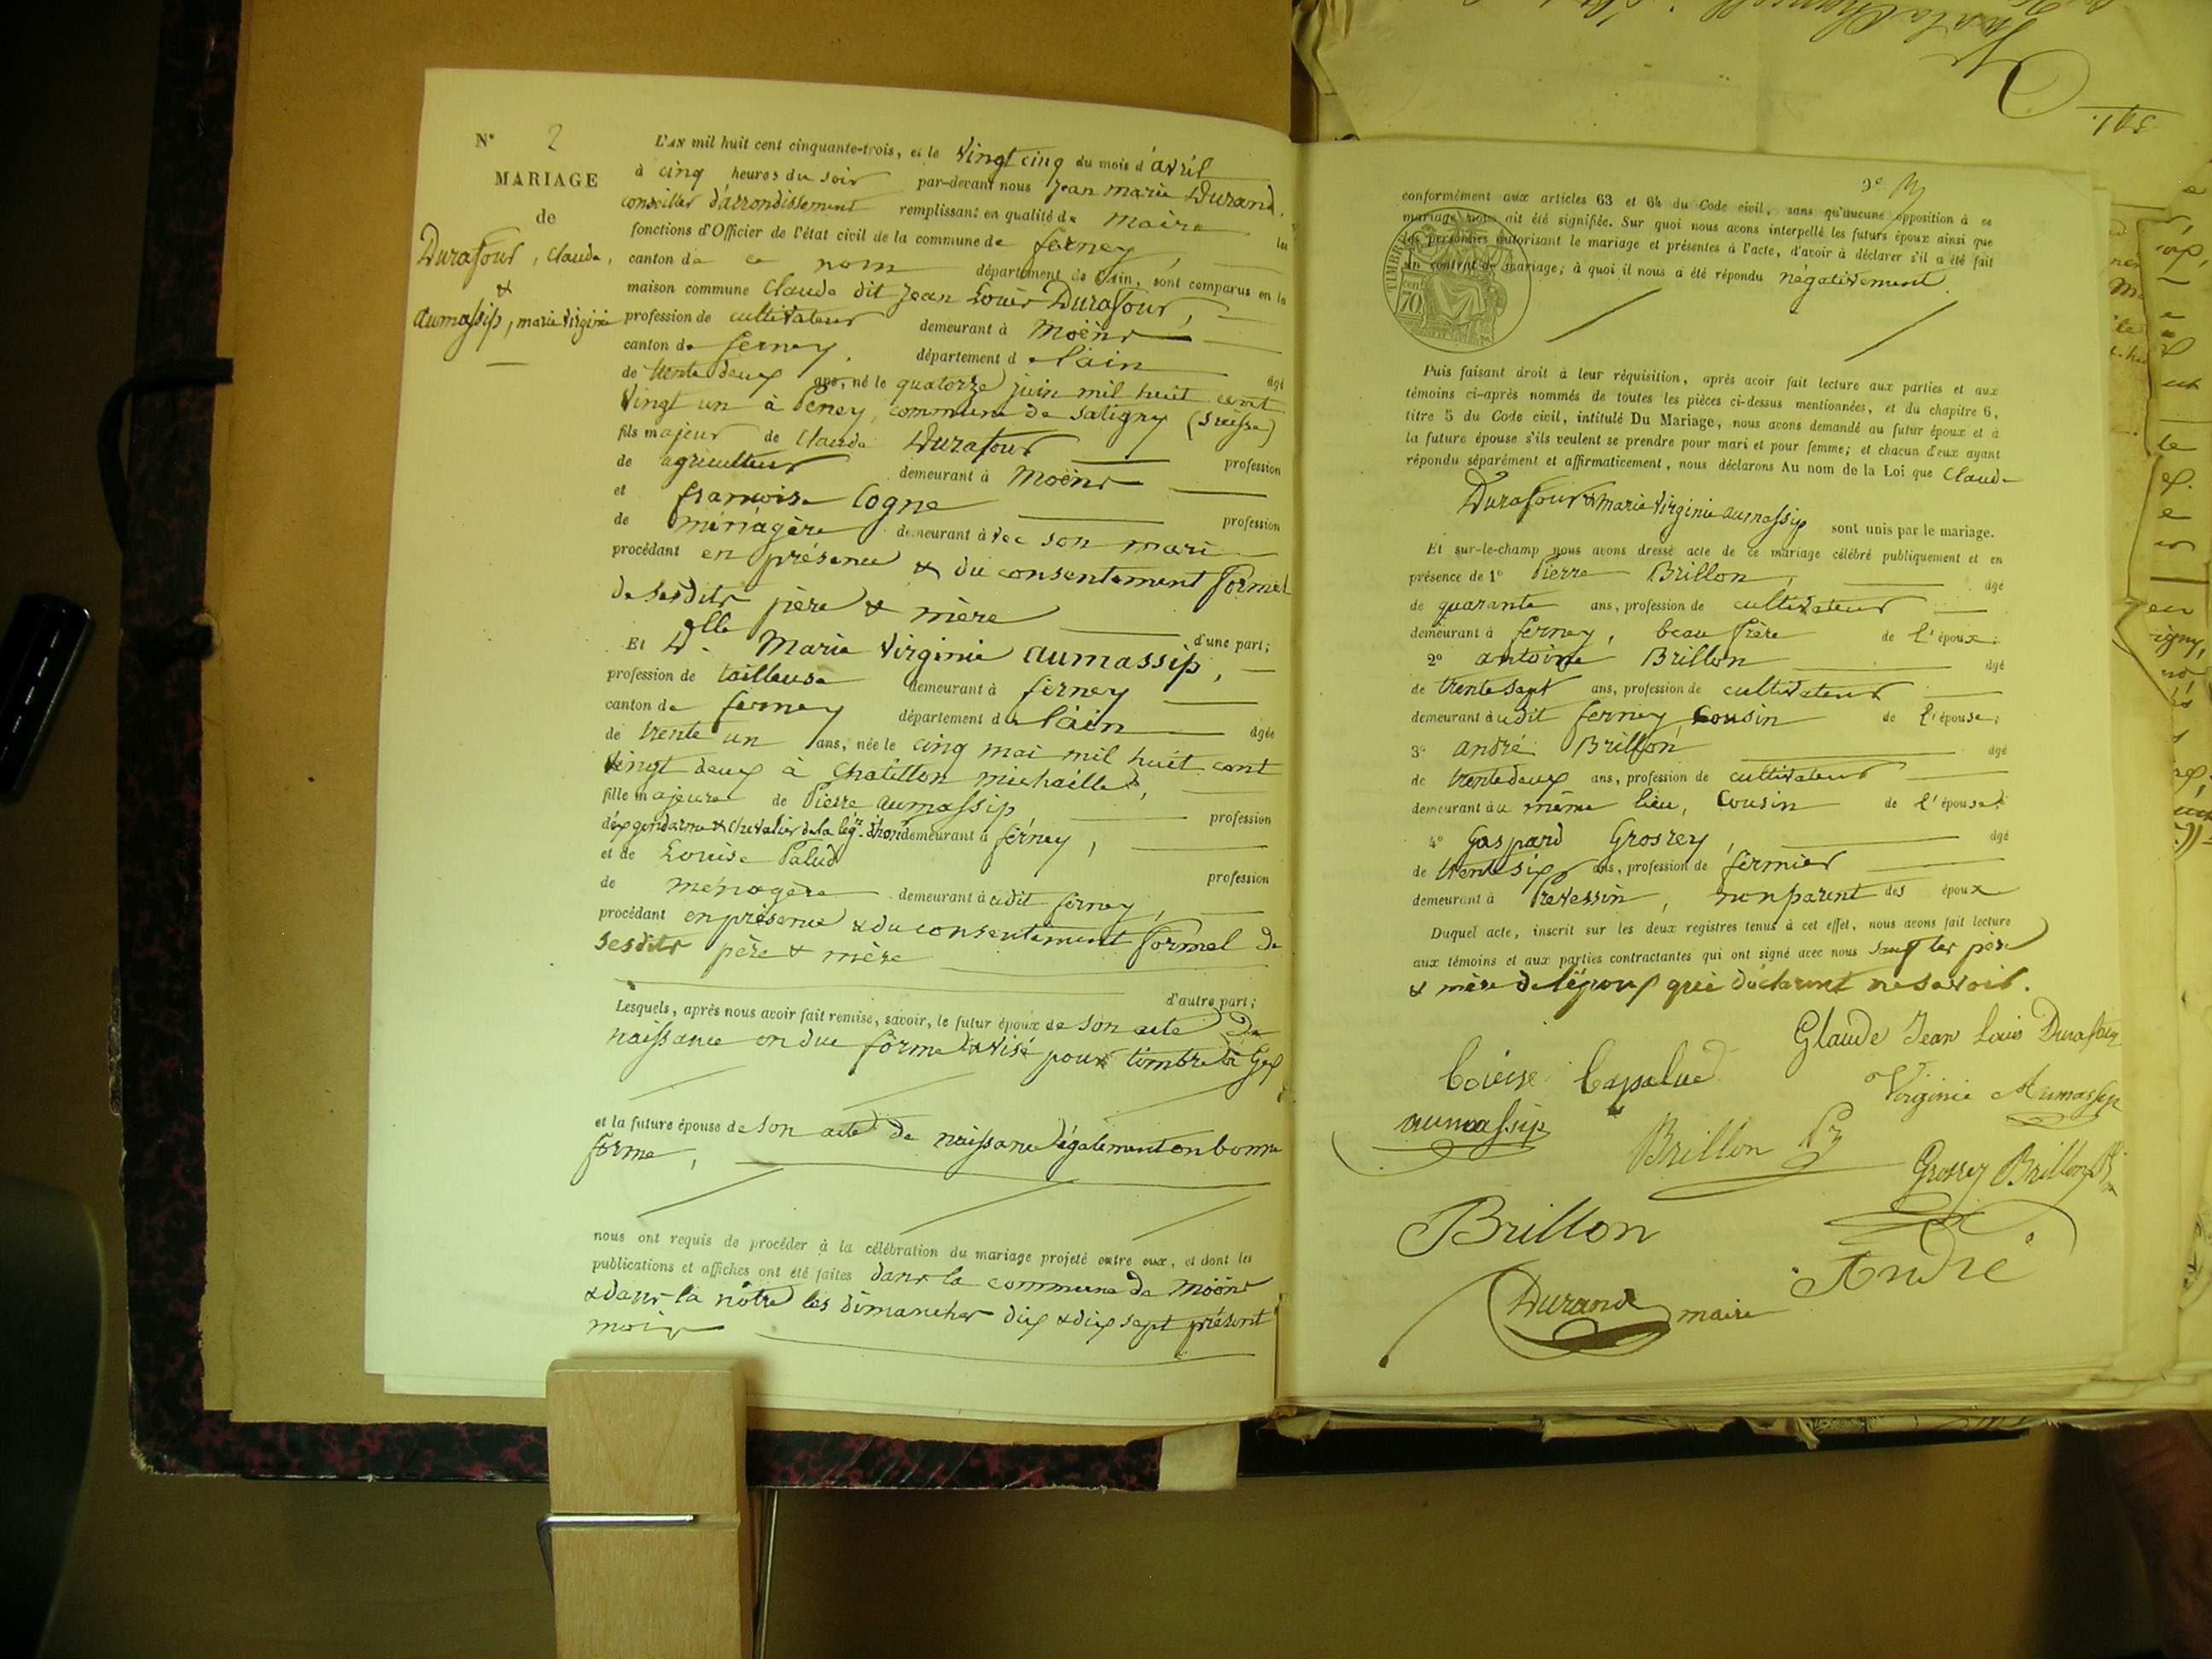 N° 2
MARIAGE
de
Durafour, Claude,
&
aumassip, marie Virginie
L'AN mil huit cent cinquante-trois, et le Vingt cinq du mois d'avril
à cinq heures du soir par-devant nous Jean marie Durand,
conseiller d'arrondissement remplissant en qualité de maire les
fonctions d'Officier de l'état civil de la commune de ferney,
canton de ce nom département de l'Ain, sont comparus en la
maison commune Claude dit Jean Louis Durafour,
profession de cultivateur demeurant à Moëns
canton de ferney. département de l'ain
âgé
de trente deux ans, né le quatorze juin mil huit cent
Vingt un à Peney, commune de Satigny (Suisse)
fils majeur de Claude Durafour
profession
de agriculteur demeurant à Moëns
et francoise Cogne
profession
de ménagère demeurant avec son mari
procédant en présence & du consentement formel
de sesdits père & mère
d'une part;
Et Dlle Marie Virginie aumassip,
profession de tailleuse demeurant à ferney
canton de ferney département de l'ain
âgée
de trente un ans, née le cinq mai mil huit cent
Vingt deux à Chatillon michaille,
fille majeure de Pierre aumassip
profession
d'ex gendarme & Chevalier de la légn d'hon demeurant à férney,
et de Louise Palud
profession
de ménagère demeurant audit ferney,
procédant en présence & du consentement formel de
sesdits père & mère
d'autre part;
Lesquels, après nous avoir fait remise, savoir, le futur époux de son acte de
naissance en due forme & visé pour timbre à Gex
et la future épouse de son acte de naissance également en bonne
forme,
nous ont requis de procéder à la célébration du mariage projeté entre eux, et dont les
publications et affiches ont été faites dans la commune de Moëns
& dans la nôtre les dimanches dix & dix sept présent
mois
2e
conformément aux articles 63 et 64 du Code civil, sans qu'aucune opposition à ce
mariage nous ait été signifiée. Sur quoi nous avons interpellé les futurs époux ainsi que
les personnes autorisant le mariage et présentes à l'acte, d'avoir à déclarer s'il a été fait
un contrat de mariage; à quoi il nous a été répondu négativement.
TIMBRE
70 cen
Puis faisant droit à leur réquisition, après avoir fait lecture aux parties et aux
témoins ci-après nommés de toutes les pièces ci-dessus mentionnées, et du chapitre 6,
titre 5 du Code civil, intitulé Du Mariage, nous avons demandé au futur époux et à
la future épouse s'ils veulent se prendre pour mari et pour femme; et chacun d'eux ayant
répondu séparément et affirmativement, nous déclarons Au nom de la Loi que Claude
Durafour & marie Virginie aumassip sont unis par le mariage.
Et sur-le-champ nous avons dressé acte de ce mariage célébré publiquement et en
présence de 1° Pierre Brillon, âgé
de quarante ans, profession de cultivateur
demeurant à ferney, beau frère de l'époux;
2° antoine Brillon âgé
de trente sept ans, profession de cultivateur
demeurant audit ferney, cousin de l'épouse;
3° andré Brillon âgé
de trente deux ans, profession de cultivateur
demeurant au même lieu, Cousin de l'épouse;
4° Gaspard Grosrey, âgé
de trente six ans, profession de fermier
demeurant à Prevessin, non parent des époux
Duquel acte, inscrit sur les deux registres tenus à cet effet, nous avons fait lecture
aux témoins et aux parties contractantes qui ont signé avec nous sauf les père
& mère de l'époux qui déclarent ne savoir.
Glaude Jean Louis Durafour
Louise Lapalud
Virginie Aumassip
aumassip
Brillon Pre
Grosrey Brillon
Brillon
André
Durand maire